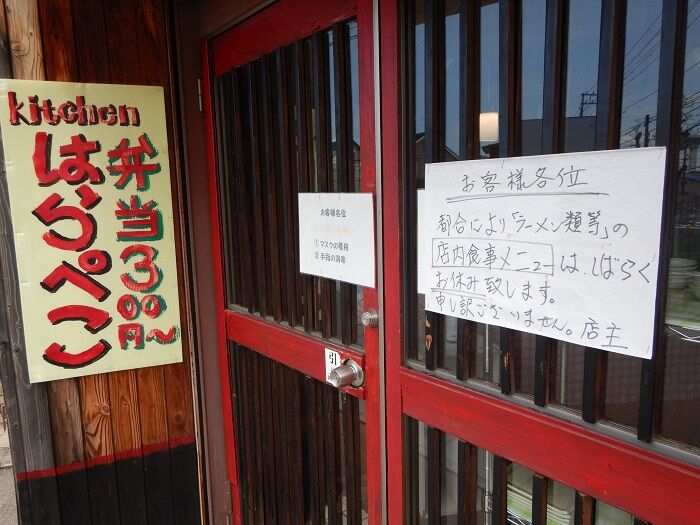 kitchen
はらぺこ
弁当300円〜
お客様各位
①マスクの着用
②手指の消毒
引
お客様各位
都合により「ラーメン類等」の
店内食事メニューは、しばらく
お休み致します。
申し訳ございません。店主